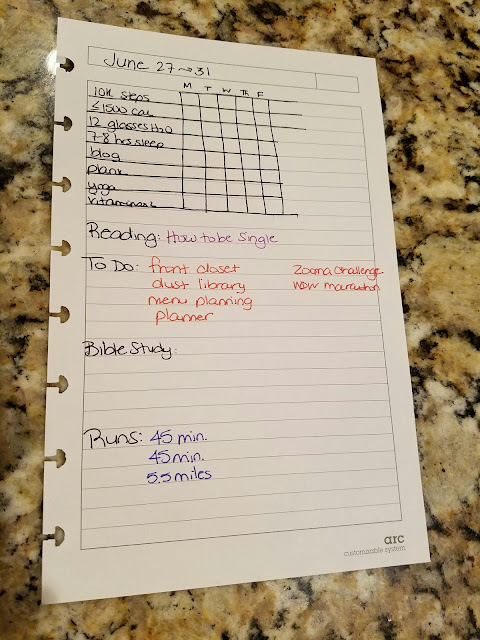 June 27→31
M T W Th F
10K steps
<1500 cal
12 glasses H2O
7-8 hrs sleep
blog
plank
yoga
vitamins
Reading: How to be Single
To Do: front closet Zooma Challenge
dust library WDW marathon
menu planning
planner
Bible Study:
Runs: 45 min.
45 min.
5.5 miles
arc
customizable system